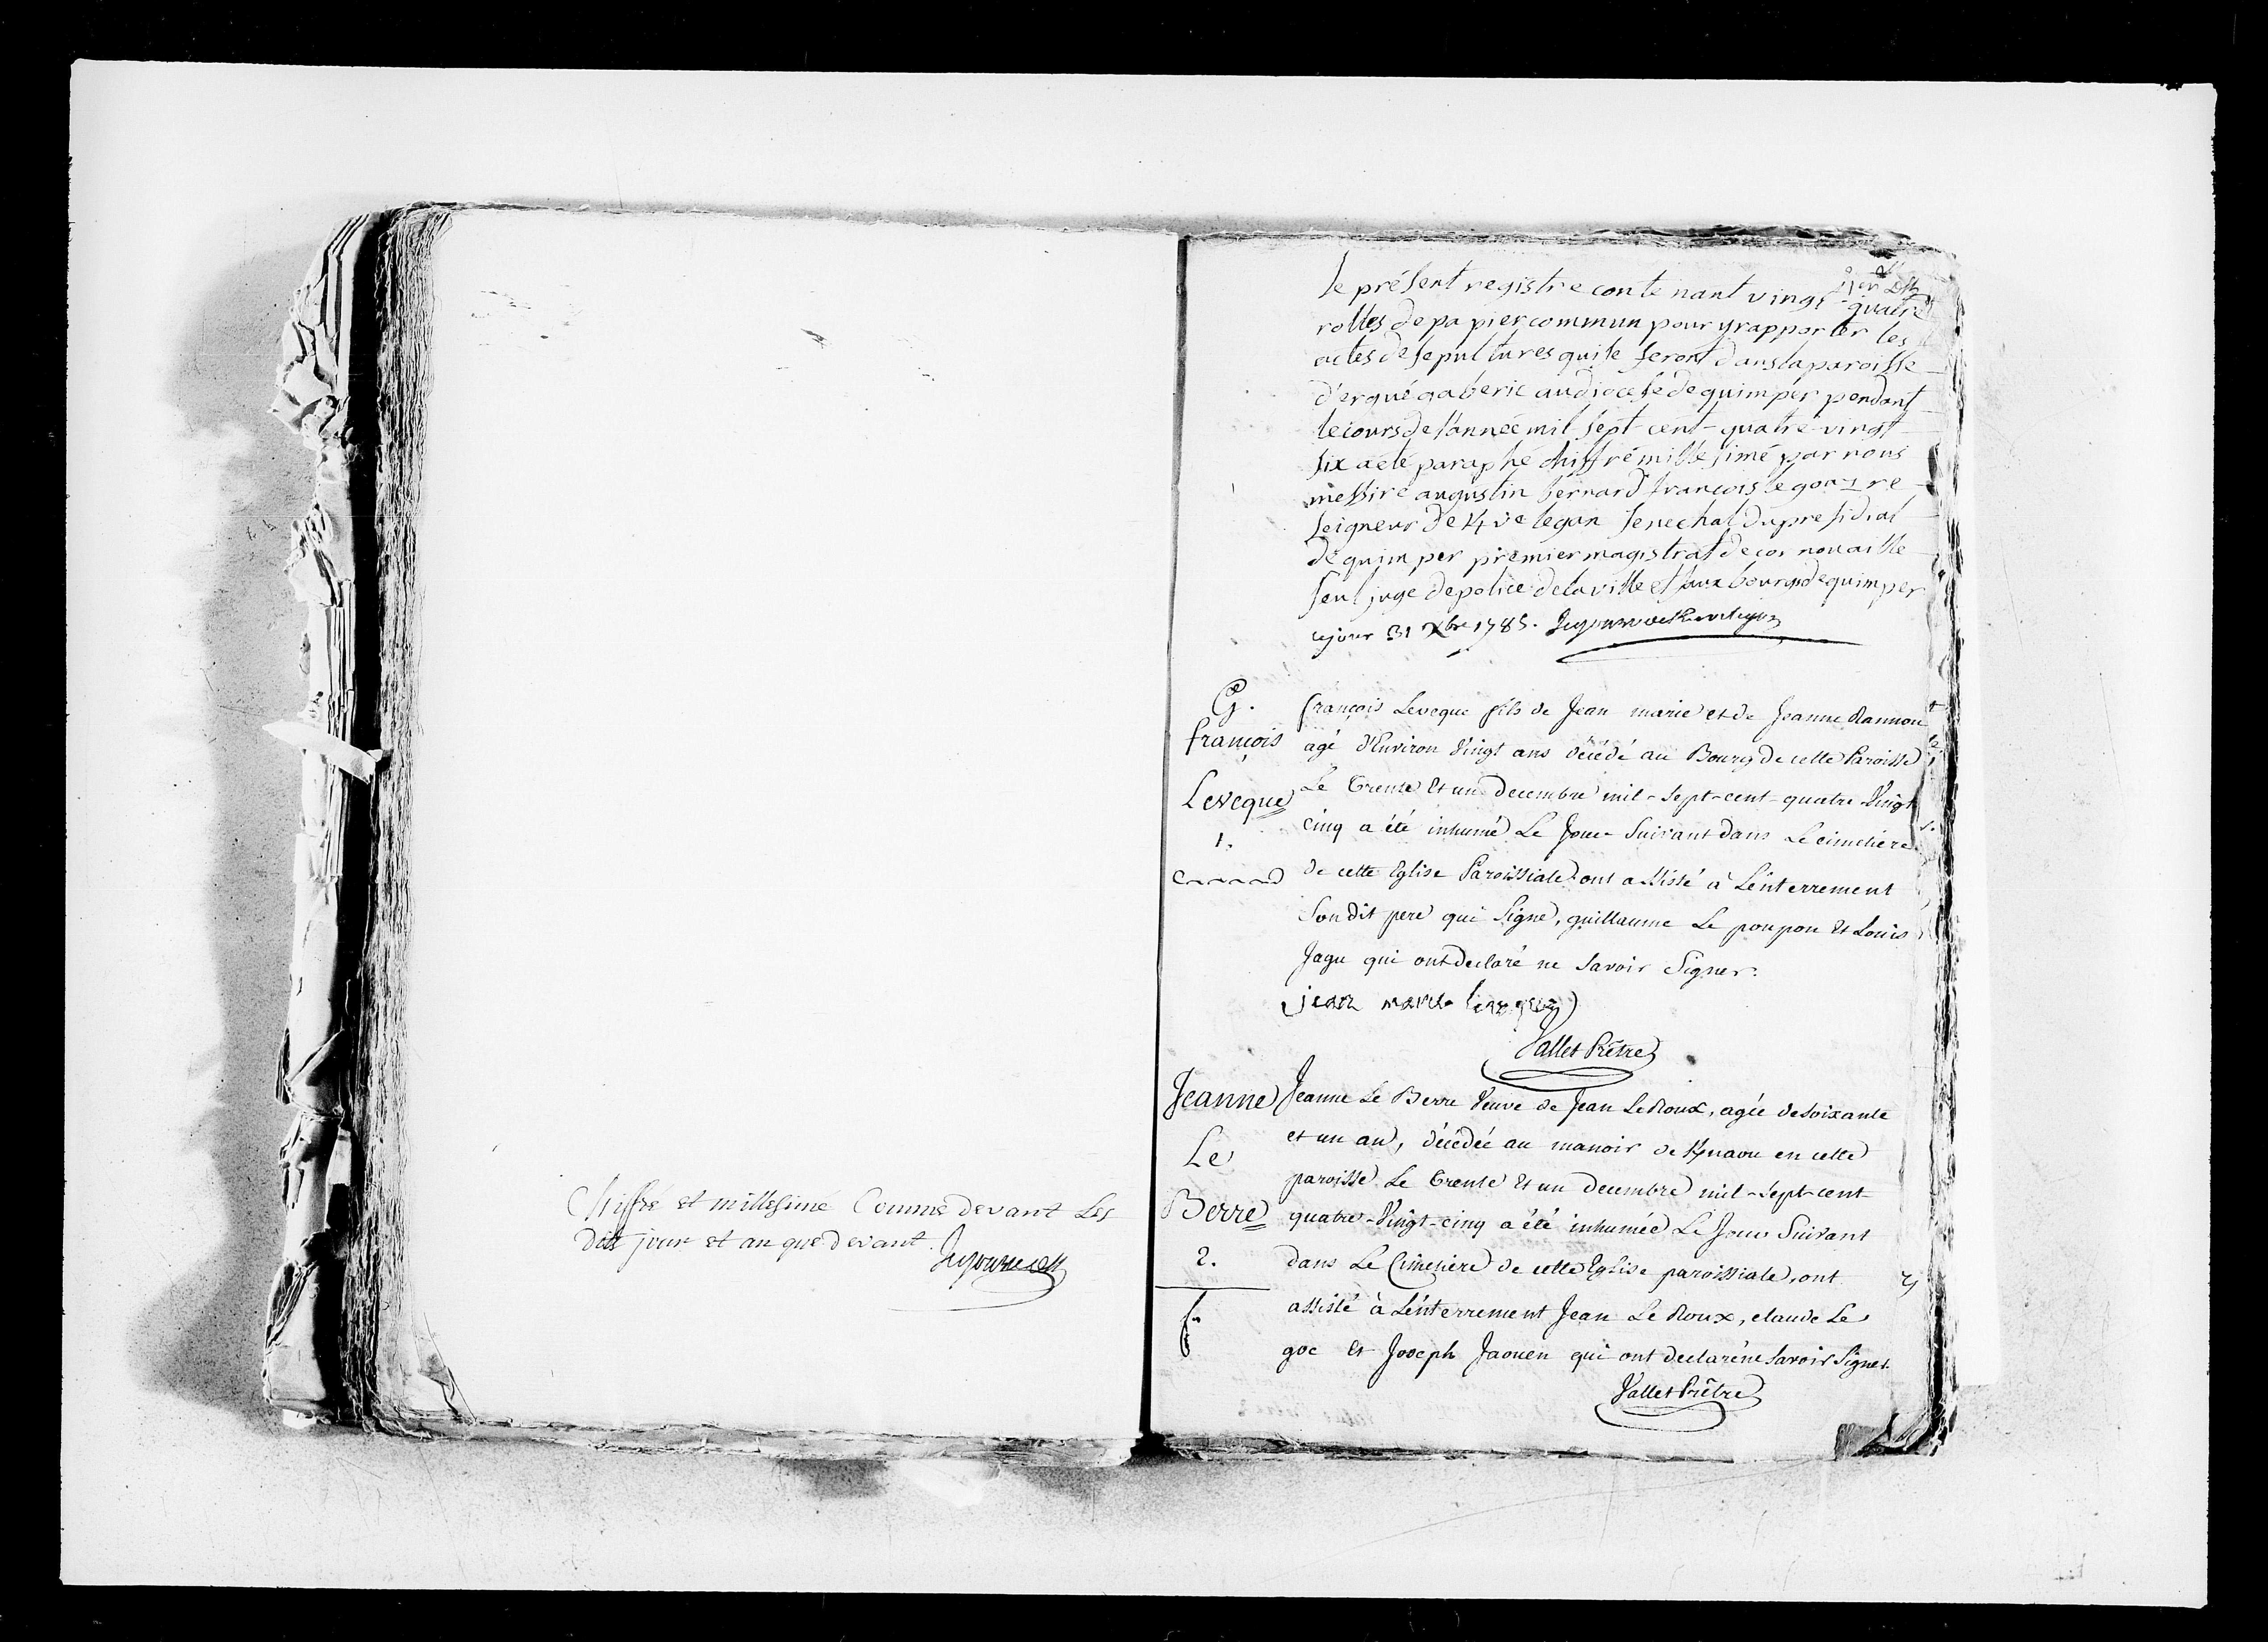 Chiffré et millesimé Comme devant Les
dits jour et an que devant.
1er
le présent registre contenant vingt-quatre
rolles de papier commun pour y rapporter les
actes de sepultures qui se feront dans la paroisse
d'ergué gaberic au diocese de quimper pendant
le cours de l'année mil sept cent quatre vingt
six a eté paraphé chiffré millesimé par nous
messire augustin bernard françois legoazre
seigneur de Kvelegan senechal du presidial
de quimper premier magistrat de cornouaille
seul juge de police de la ville et faux bourgs de quimper
ce jour 31 Xbre 1785. Legoazre de Kervelegan
G.
françois
Leveque
1.
françois Leveque fils de Jean marie et de Jeanne Rannou
agé d'Environ Vingt ans décédé au Bourg de cette Paroisse
Le Trente Et un Decembre mil-sept-cent-quatre Vingt
cinq a été inhumé Le Jour Suivant dans Le cimetiere
de cette Eglise Paroissiale ont assisté à L'enterrement
Son dit pere qui Signe, guillaume Le poupon Et Louis
Jagu qui ont declaré ne Savoir Signer.
jean marie leveque
Vallet Prêtre
Jeanne
Le
Berre
2.
Jeanne Le Berre Veuve de Jean Le Roux, agée de soixante
et un an, décédée au manoir de Knaou en cette
paroisse Le Trente Et un Decembre mil-sept-cent
quatre-Vingt-cinq a été inhumée Le Jour Suivant
dans Le Cimetiere de cette Eglise paroissiale, ont
assisté à L'enterrement Jean Le Roux, claude Le
goc Et Joseph Jaouen qui ont declaré ne Savoir Signer.
Vallet Prêtre